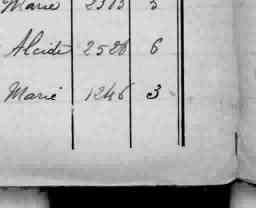 Marie 2515 5
Alcide 2526 6
Marie 1246 3